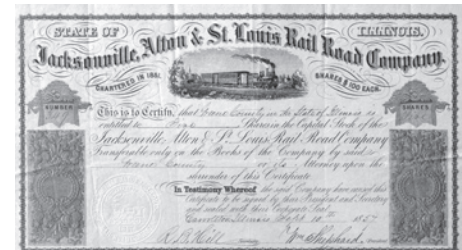 STATE OF ILLINOIS.
Jacksonville, Alton & St. Louis Rail Road Company.
CHARTERED IN 1851. SHARES $100 EACH.
NUMBER SHARES
This is to Certify, that Greene County in the State of Illinois is
entitled to Shares in the Capital Stock of the
Jacksonville Alton & St. Louis Rail Road Company
Transferable only on the Books of the Company by said
Greene County or its Attorney upon the
surrender of this Certificate
In Testimony Whereof the said Company have caused this
Certificate to be signed by their President and Secretary
and sealed with their Corporate Seal
Carrollton Illinois Sept 10th 1857
R. B. Hill Secretary Wm Shephard